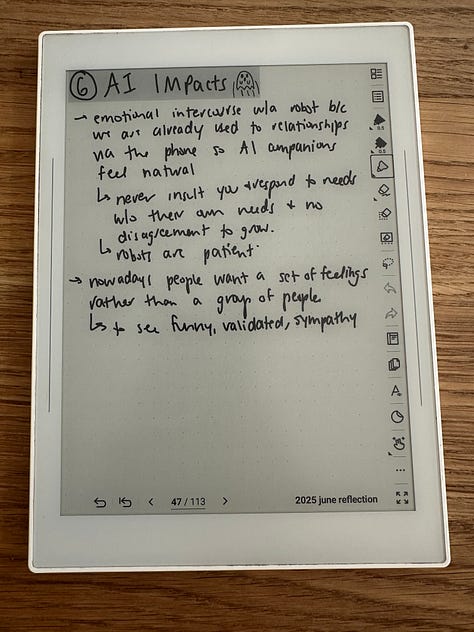 ⑥ AI Impacts
→ emotional intercourse w/a robot b/c
we are already used to relationships
via the phone so AI companions
feel natural
↳ never insult you + respond to needs
w/o their own needs + no
disagreement to grow.
↳ robots are patient.
→ nowadays people want a set of feelings
rather than a group of people
↳ to see funny, validated, sympathy
47 / 113
2025 june reflection